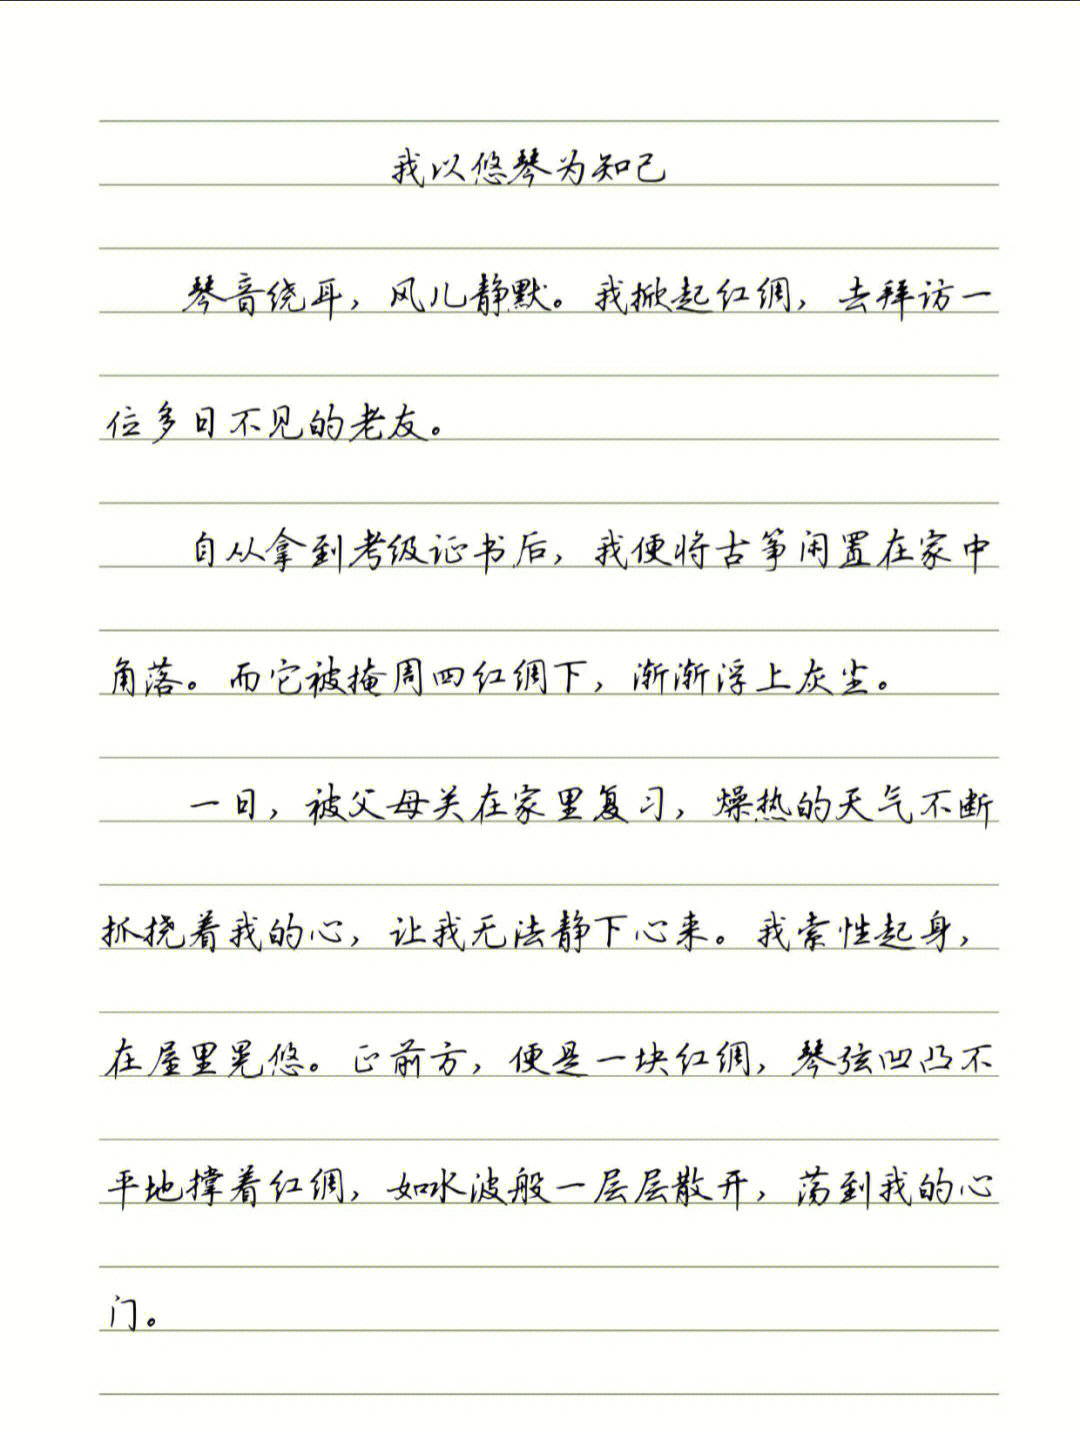 我以悠琴为知己
琴音绕耳，风儿静默。我掀起红绸，去拜访一
位多日不见的老友。
自从拿到考级证书后，我便将古筝闲置在家中
角落。而它被掩周四红绸下，渐渐浮上灰尘。
一日，被父母关在家里复习，燥热的天气不断
抓挠着我的心，让我无法静下心来。我索性起身，
在屋里晃悠。正前方，便是一块红绸，琴弦凹凸不
平地撑着红绸，如水波般一层层散开，荡到我的心
门。